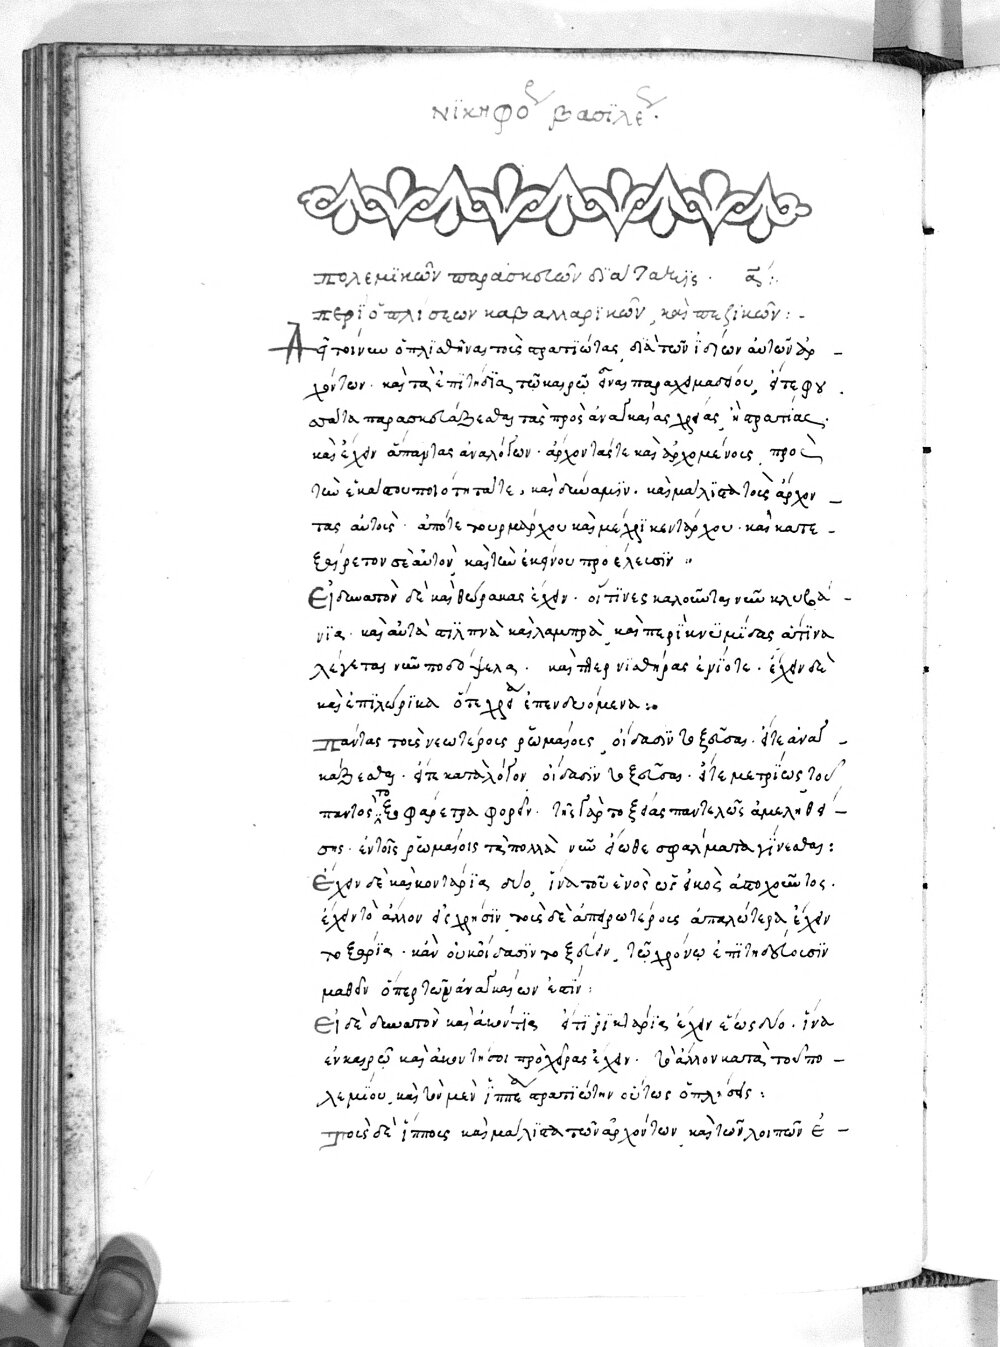 Νϊκηφόρου βασϊλέως.
πολεμϊκῶν παρασκευῶν δϊαταξϊς. α:
περὶ ὁπλίσεων καβαλλαρϊκῶν, καὶ πεζϊκῶν:
Δεῖ τοίνυν ὁπλϊσθῆναι τοὺς στρατϊώτας, διὰ τῶν ἰδίων αὐτῶν ἀρ
χόντων. καὶ τὰ ἐπϊτήδϊα τῷ καιρῷ
παρασκευάζεσθαι τὰς πρὸς ἀναγκαίας χρείας τῆς στρατιᾶς.
καὶ ἔχειν ἅπαντας ἀναλόγων. ἄρχοντάς τε καὶ ἀρχομένους, πρὸς
τὴν ἑκάστου ποιότητά τε, καὶ δύναμϊν. καὶ μάλϊστα τοὺς ἄρχον
τας αὐτοὺς. ἀπό τε τουρμάρχου καὶ μέχρϊ κεντάρχου. καὶ κατε
ξαίρετον σὲ αὐτὸν, καὶ τὴν ἐκείνου προέλευσϊν:
Εἰ δυνατὸν δὲ καὶ θώρακας ἔχειν. οἵτϊνες καλοῦνται νῦν κλυβά
νϊα. καὶ αὐτὰ στϊλπνὰ καὶ λαμπρὰ, καὶ περϊκνϊμίδας ἅτϊνα
λέγεται νῦν ποδόψελα. καὶ πτερνϊστῆρας ἐνίοτε. ἔχειν δὲ
καὶ ἐπϊλώρϊκα ὅτε χρεία ἐπενδυόμενα:
Πάντας τοὺς νεωτέρους ῥωμαίους, οἴδασϊν τοξεῦσαι. εἴτε ἀναγ
κάζεσθαι. εἴτε κατὰ λόγον οἴδασϊν τοξεῦσαι. εἴτε μετρίως τοῦ
παντὸς τοξοφάρετρα φορεῖν. τῆς γὰρ τοξείας παντελῶς ἀμεληθεί
σης. ἐν τοῖς ῥωμαίοις τὰ πολλὰ νῦν εἴωθε σφάλματα γϊνεσθαι:
Ἔχειν δὲ καὶ κοντάρϊα δύο, ἵνα τοῦ ἑνὸς ὡς εἰκὸς ἀποχοῦντος.
ἔχειν τὸ ἄλλον εἰς χρῆσϊν τοὺς δὲ ἀπειρωτέρους ἁπαλώτερα ἔχειν
τοξάρϊα. κἂν οὐκ οἴδασϊν τοξεύειν, τῷ χρόνῳ ἐπϊτηδεύουσϊν
μαθεῖν ὅπερ τῶν ἀναγκαίων ἐστίν:
Εἰ δὲ δυνατὸν καὶ ἀκόντϊα ἔχειν ἕως δύο. ἵνα
ἐν καιρῷ καὶ ἀκοντῆσοι πρόχειρας ἔχειν. τὸ ἄλλον κατὰ τοῦ πο
λεμίου, καὶ τὸν μὲν ἱππέα στρατϊώτην οὕτως ὁπλήσεις:
Τοὺς δὲ ἵππους καὶ μάλϊστα τῶν ἀρχόντων, καὶ τῶν λοιπῶν ἐ